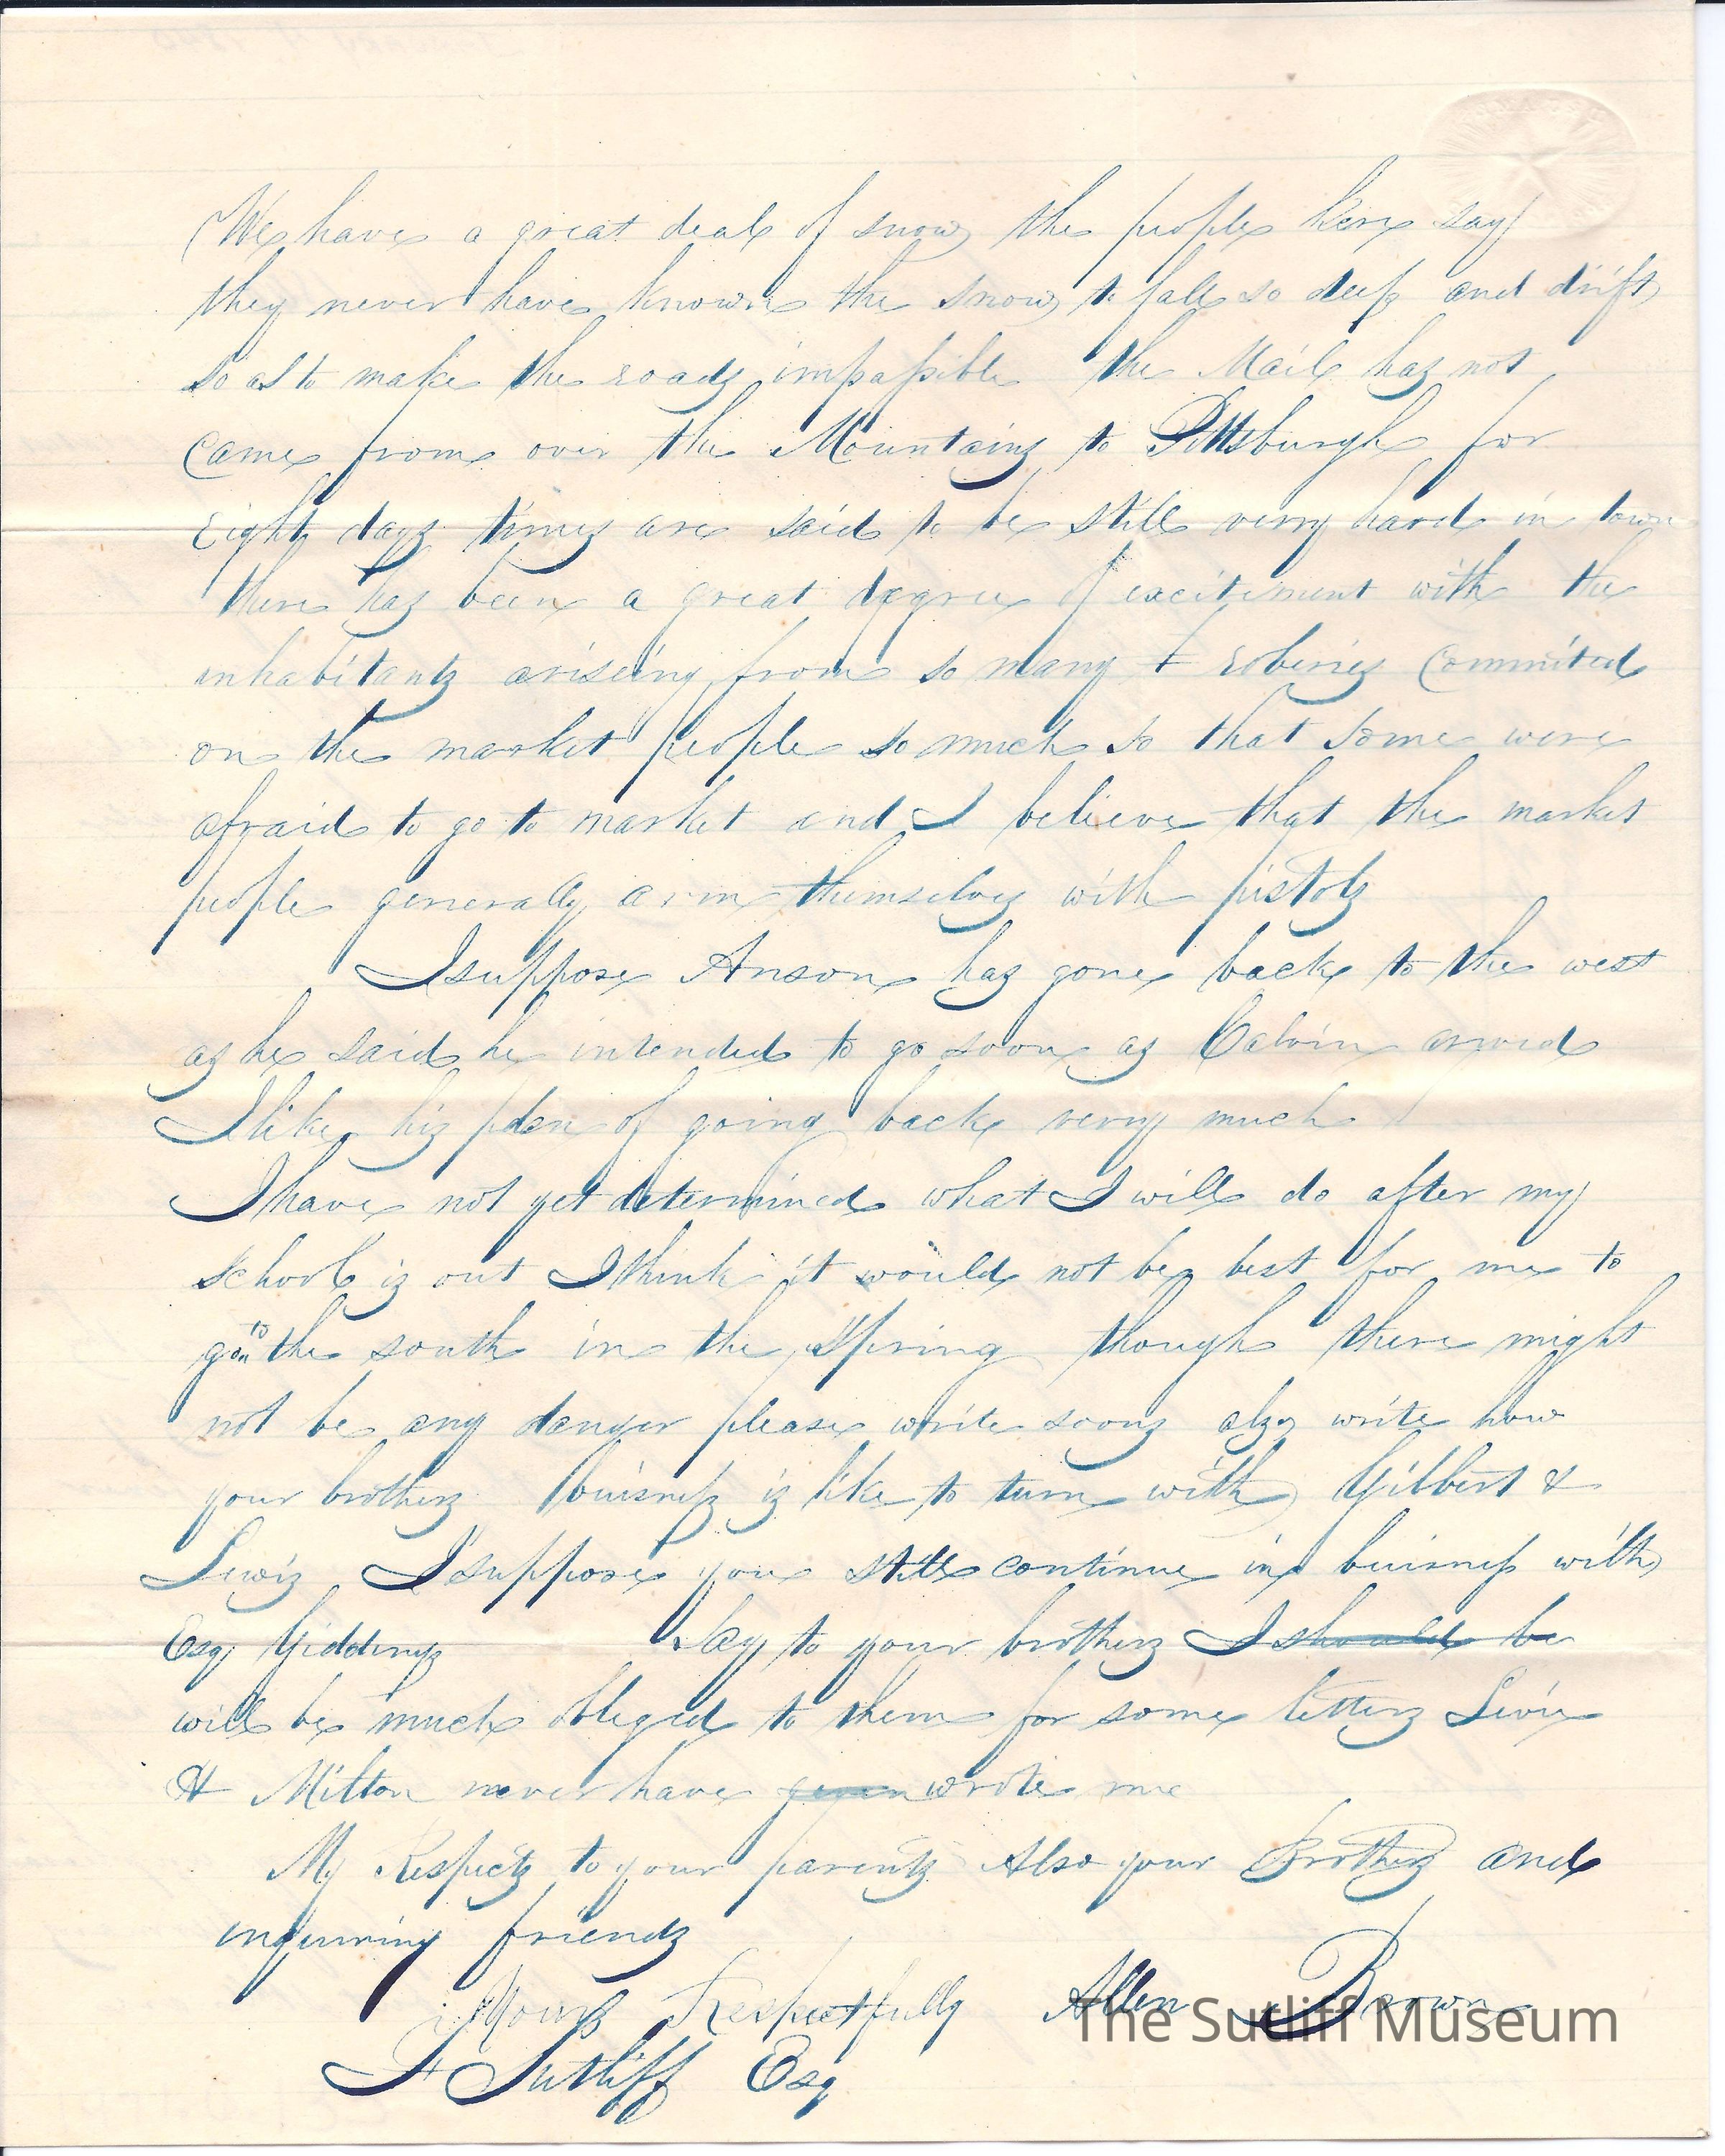 We have a great deal of snow the people here say
they never have known the snow to fall so deep and drift
so as to make the roads impassible the Mail has not
came from over the Mountains to Pittsburgh for
Eight days times are said to be still verry hard in town
there has been a great degree of excitement with the
inhabitants ariseing from so many roberies Commited
on the market people so much so that some were
afraid to go to market and I believe that the market
people generally arm themselves with pistols
I suppose Anson has gone back to the west
as he said he intended to go soon as Calvin arived
I like his plan of going back verry much
I have not yet determined what I will do after my
school is out I think it would not be best for me to
go to the south in the Spring though there might
not be any danger please write soons also write how
your brothers buisness is like to turn with Gilbert &
Lewis I suppose you still continue in buisness with
Esq Giddings Say to your brothers I should be
will be much obleged to them for some letters Levi
& Milton never have wrote me
My Respects to your parents Also your Brothers and
inquiring friends
Yours Respectfully Allen Brown
F Sutliff Esq
The Sutliff Museum